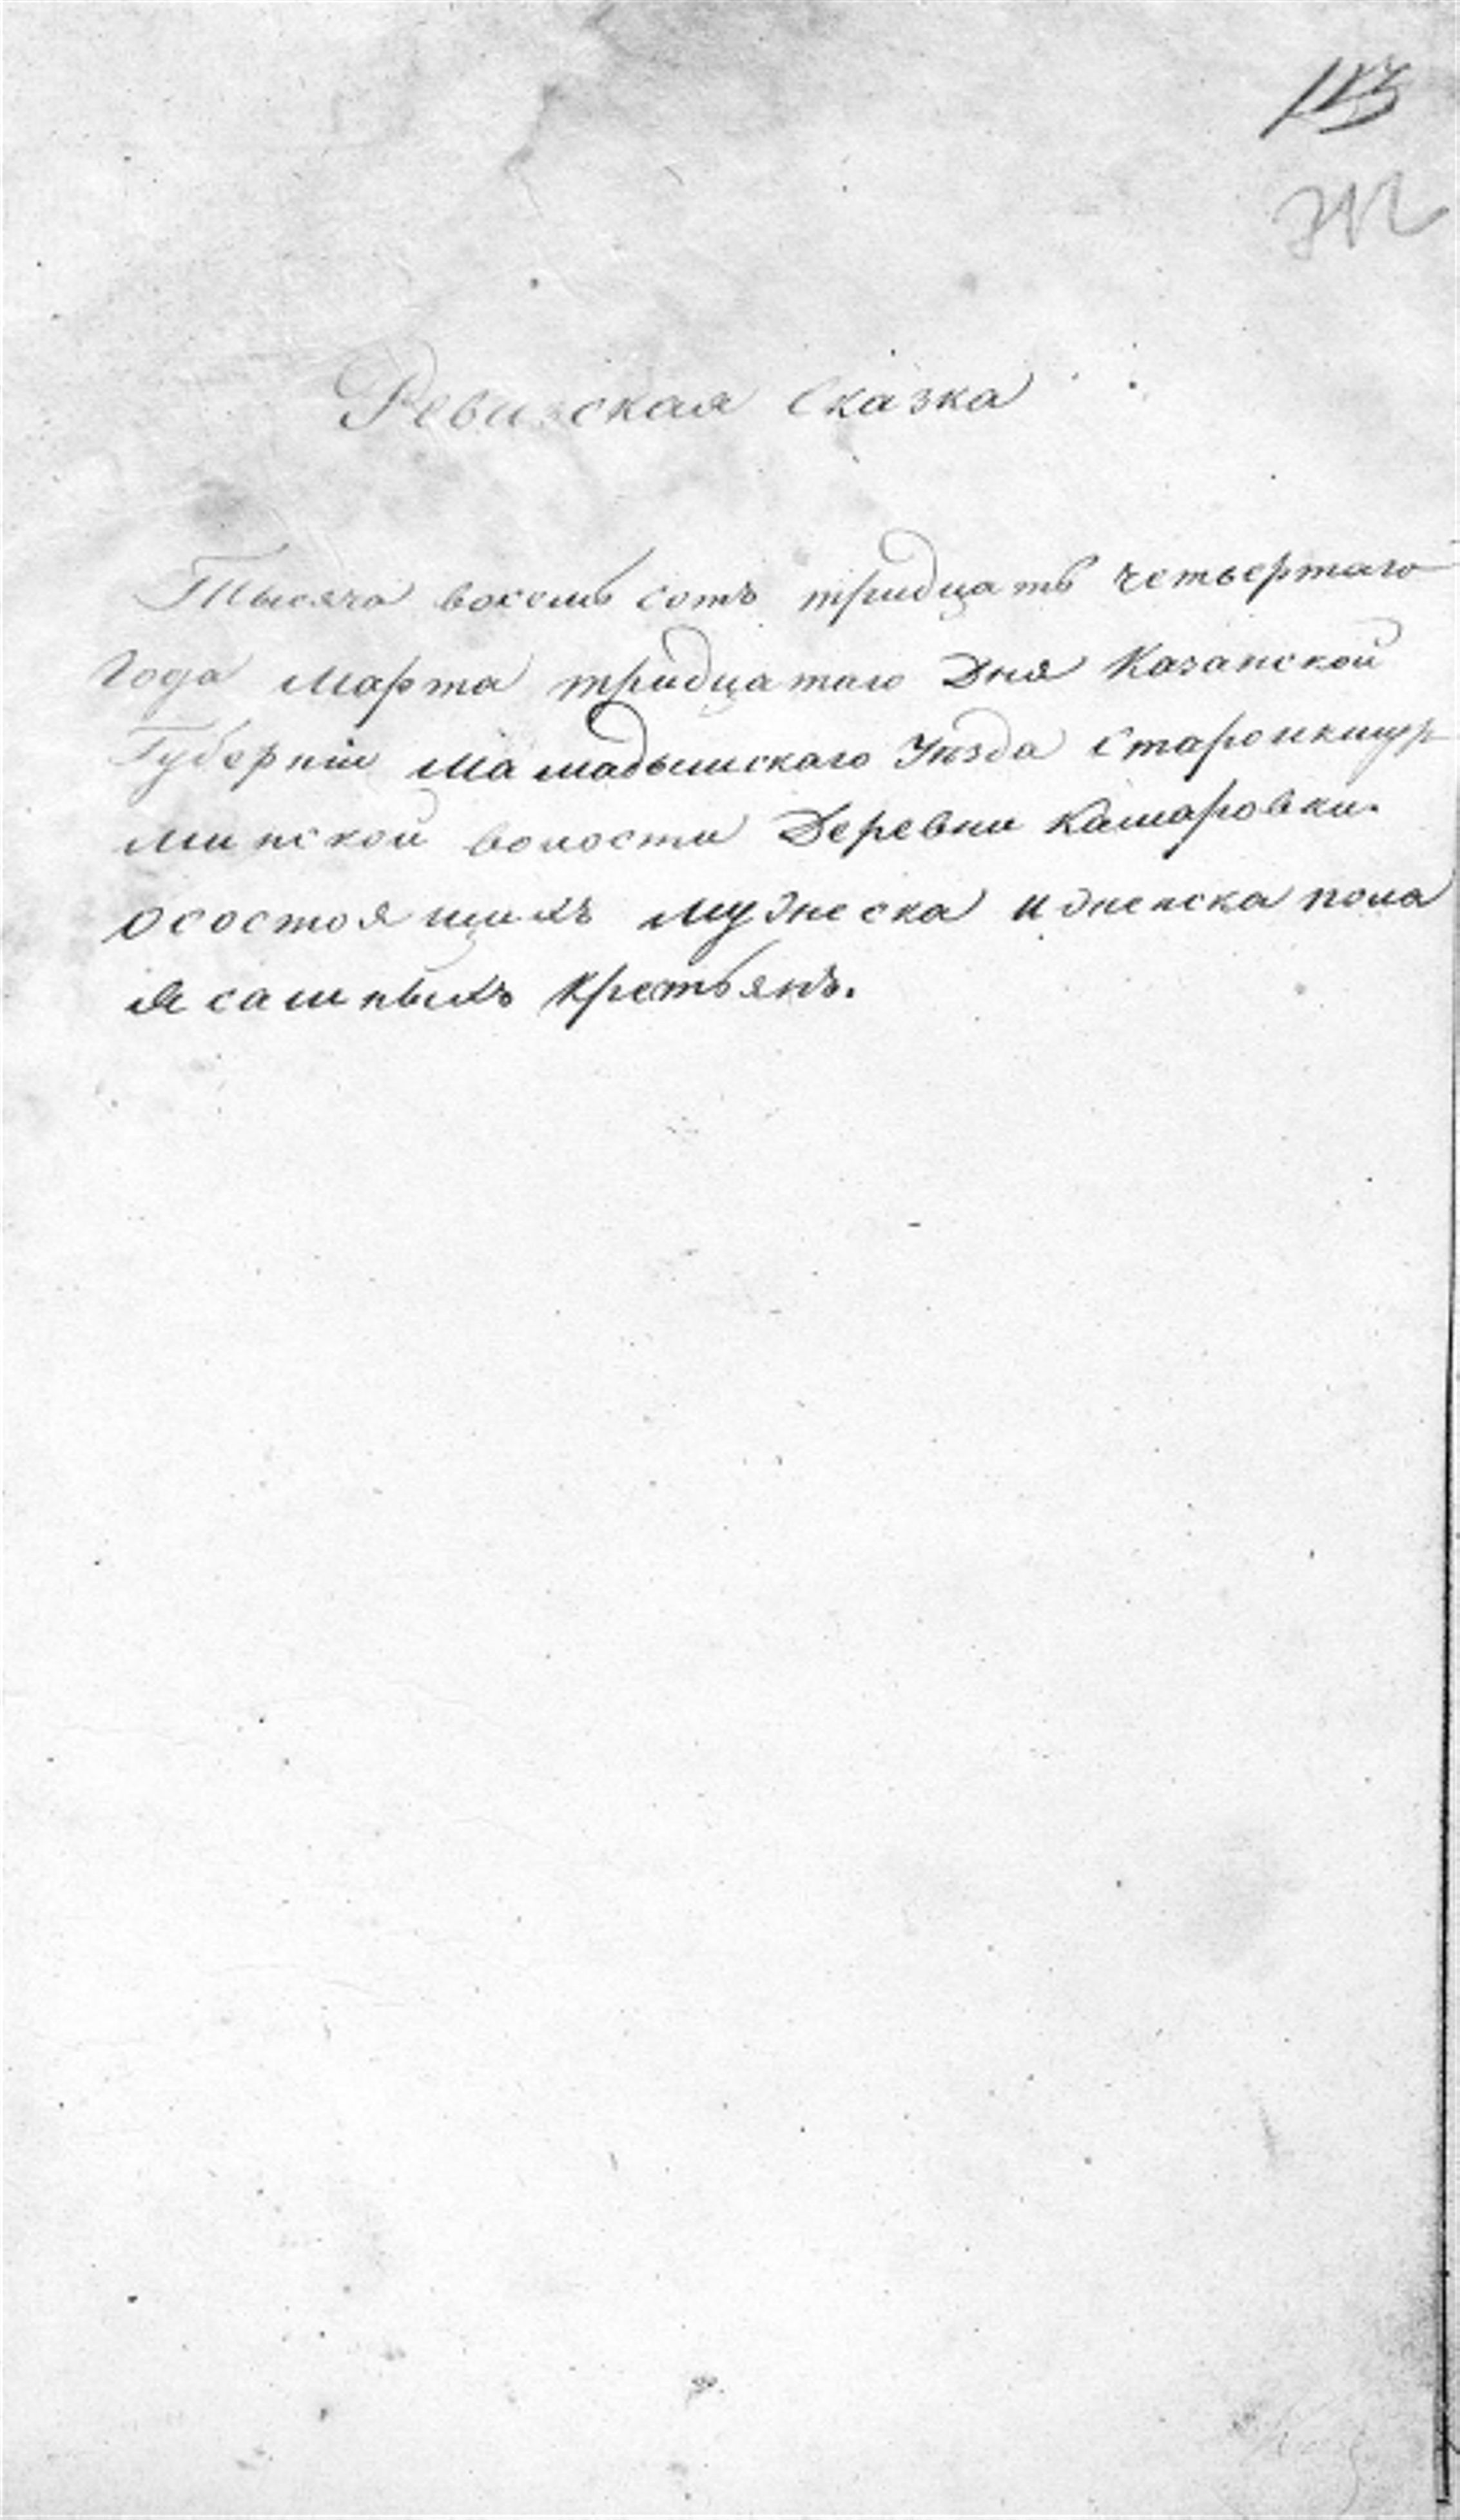 Ревизская Сказка
Тысяча восемь сотъ тридцать четвертаго
Года Марта тридцатаго Дня Казанской
Губерніи Мамадышскаго Уѣзда Староикшур
минской волости Деревни Камаровки.
осостоящихъ Мужеска и женска пола
Ясашныхъ Крестьянъ.